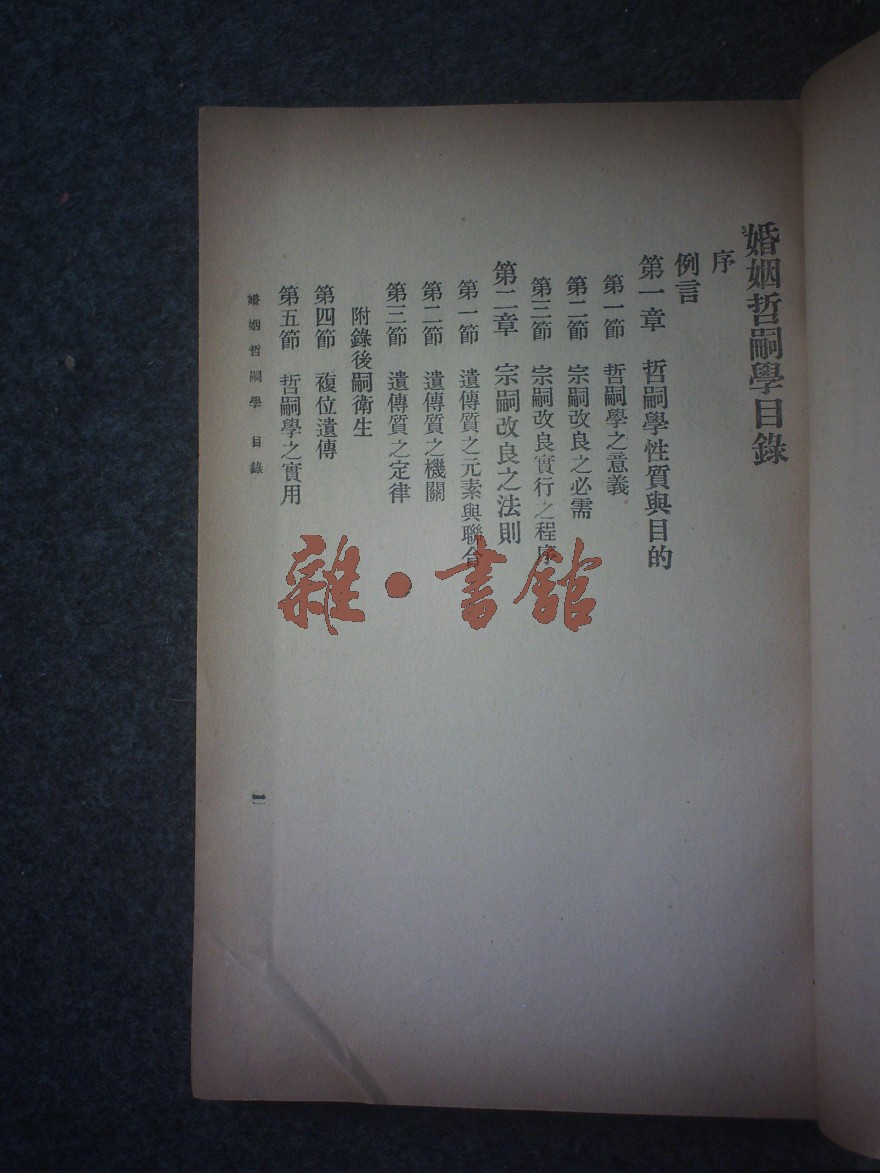 婚姻哲嗣學目錄
序
例言
第一章　哲嗣學性質與目的
第一節　哲嗣學之意義
第二節　宗嗣改良之必需
第三節　宗嗣改良實行之程序
第二章　宗嗣改良之法則
第一節　遺傳質之元素與聯合
第二節　遺傳質之機關
第三節　遺傳質之定律
附錄後嗣衛生
第四節　複位遺傳
第五節　哲嗣學之實用
婚姻哲嗣學　目錄
一
雜·書館